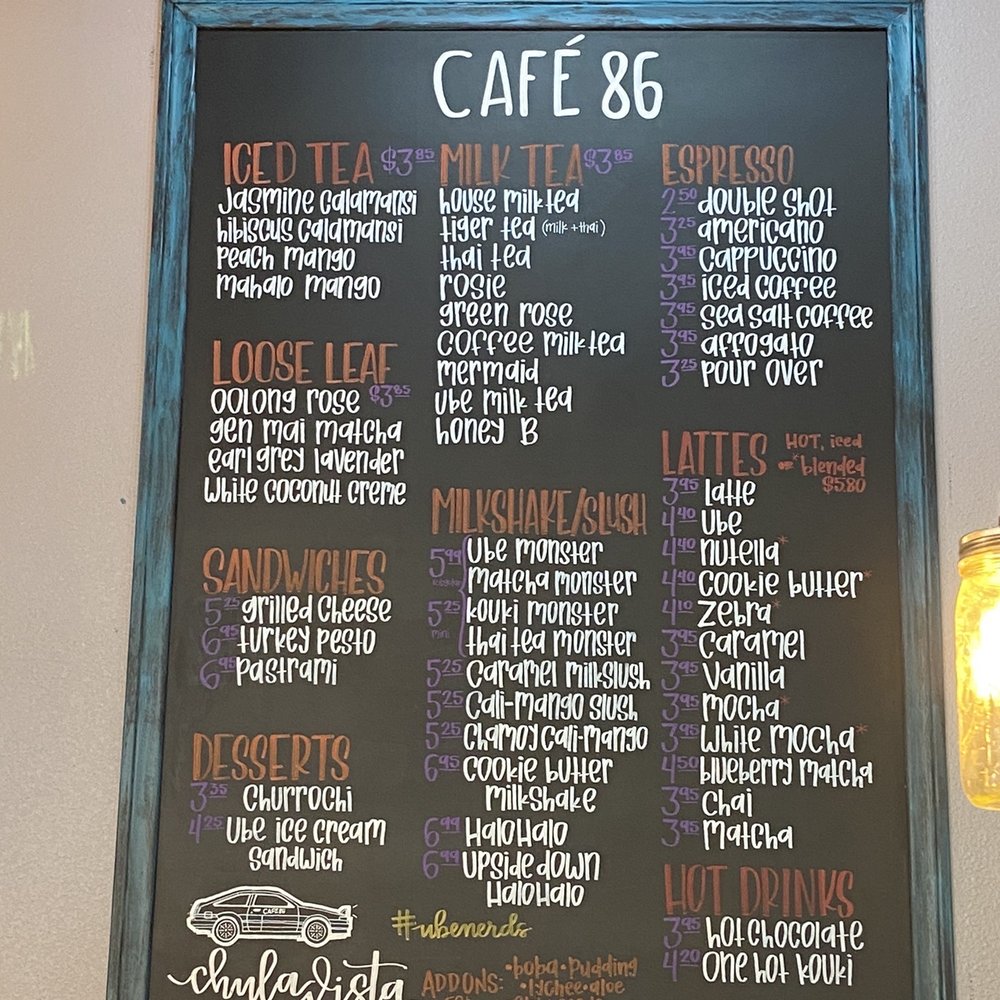 CAFÉ 86
ICED TEA $3.85
Jasmine Calamansi
hibiscus Calamansi
Peach mango
mahalo mango
LOOSE LEAF
oolong rose $3.85
gen mai matcha
earl grey lavender
White coconut creme
SANDWICHES
5.25 grilled cheese
6.95 turkey pesto
6.95 Pastrami
DESSERTS
3.35 Churrochi
4.25 Ube ice cream
Sandwich
CAFE 86
chula vista
MILK TEA $3.85
house milk tea
tiger tea (milk + thai)
thai tea
rosie
green rose
coffee milk tea
mermaid
ube milk tea
honey B
MILKSHAKE/SLUSH
5.99 Ube monster
Matcha monster
5.25 mini kouki monster
thai tea monster
5.25 Caramel milkslush
5.25 Cali-Mango Slush
5.25 Chamoy Cali-Mango
6.95 Cookie butter
Milkshake
6.99 HaloHalo
6.99 Upside down
HaloHalo
#ubenerds
ADD ONS: •boba •Pudding
•lychee •aloe
ESPRESSO
2.50 double shot
3.25 americano
3.95 Cappuccino
3.95 iced coffee
3.95 sea salt coffee
3.95 affogato
3.25 pour over
LATTES HOT, iced
or *blended
$5.80
3.95 latte
4.40 Ube
4.40 nutella*
4.40 Cookie butter*
4.10 Zebra*
3.95 Caramel
3.95 Vanilla
3.95 mocha*
3.95 White mocha*
4.50 blueberry matcha
3.95 Chai
3.95 Matcha
HOT DRINKS
3.95 hot chocolate
4.20 One hot kouki